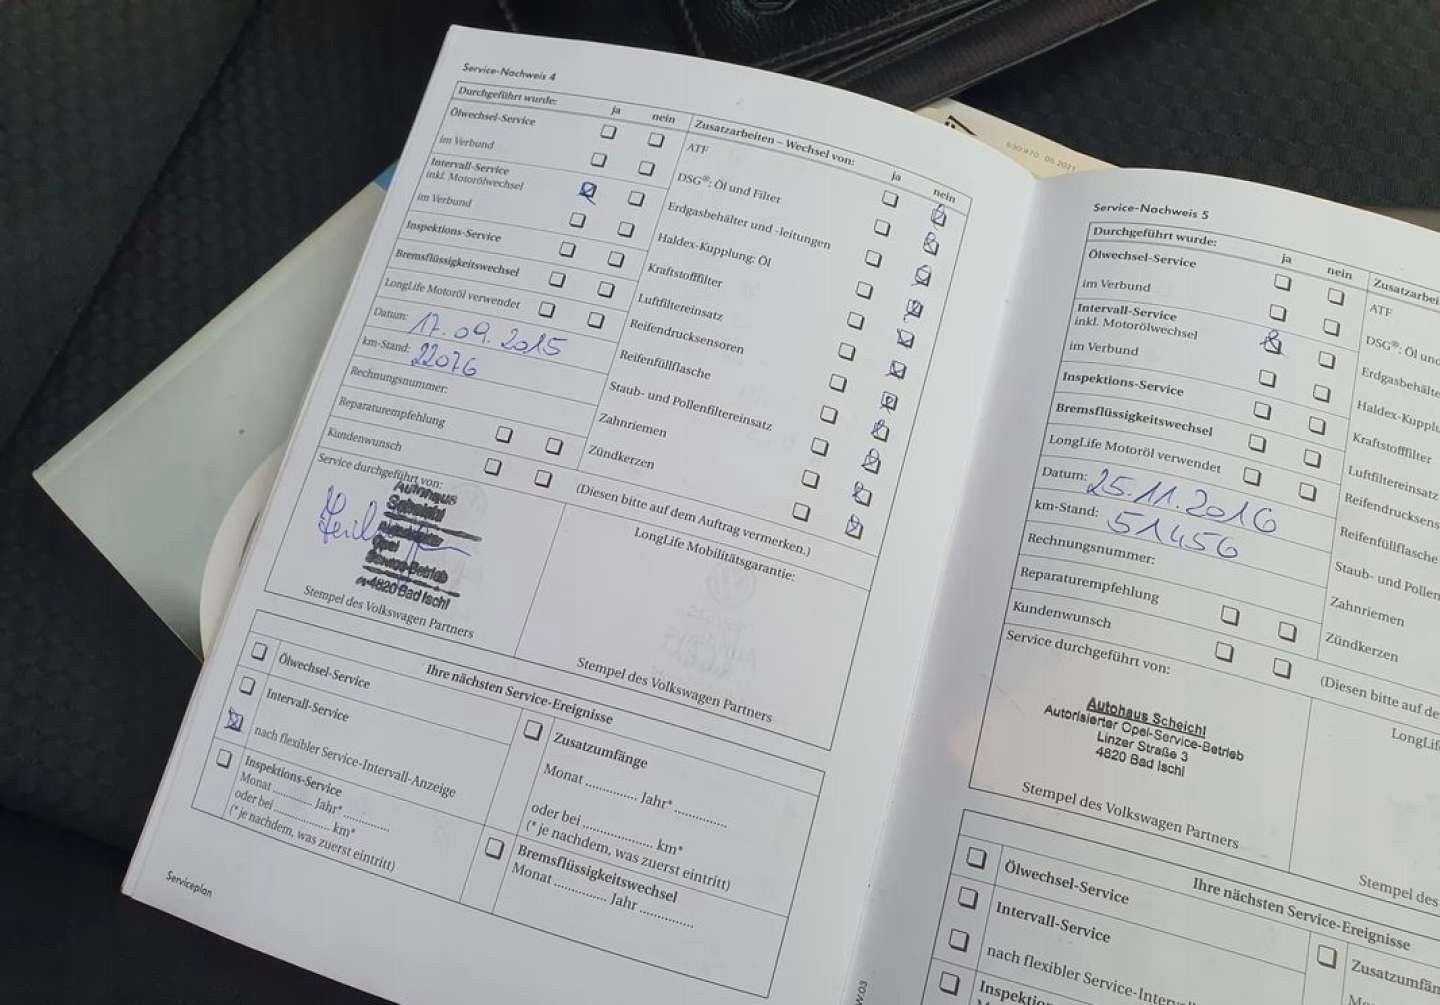 Service-Nachweis 4
Durchgeführt wurde: ja nein
Ölwechsel-Service
im Verbund
Intervall-Service
inkl. Motorölwechsel
im Verbund
Inspektions-Service
Bremsflüssigkeitswechsel
LongLife Motoröl verwendet
Datum: 17.09.2015
km-Stand: 22076
Rechnungsnummer:
Reparaturempfehlung
Kundenwunsch
Service durchgeführt von:
Autohaus
Scheichl
Opel
Service-Betrieb
A-4820 Bad Ischl
Stempel des Volkswagen Partners
Zusatzarbeiten – Wechsel von: ja nein
ATF
DSG®: Öl und Filter
Erdgasbehälter und -leitungen
Haldex-Kupplung: Öl
Kraftstofffilter
Luftfiltereinsatz
Reifendrucksensoren
Reifenfüllflasche
Staub- und Pollenfiltereinsatz
Zahnriemen
Zündkerzen
(Diesen bitte auf dem Auftrag vermerken.)
LongLife Mobilitätsgarantie:
Stempel des Volkswagen Partners
Ihre nächsten Service-Ereignisse
Ölwechsel-Service
Intervall-Service
nach flexibler Service-Intervall-Anzeige
Inspektions-Service
Monat ............ Jahr* ..............
oder bei ................. km*
(* je nachdem, was zuerst eintritt)
Zusatzumfänge
Monat .............. Jahr* ..............
oder bei ................... km*
(* je nachdem, was zuerst eintritt)
Bremsflüssigkeitswechsel
Monat .............. Jahr ..............
Serviceplan
630.970 05.2021
Service-Nachweis 5
Durchgeführt wurde: ja nein
Ölwechsel-Service
im Verbund
Intervall-Service
inkl. Motorölwechsel
im Verbund
Inspektions-Service
Bremsflüssigkeitswechsel
LongLife Motoröl verwendet
Datum: 25.11.2016
km-Stand: 51456
Rechnungsnummer:
Reparaturempfehlung
Kundenwunsch
Service durchgeführt von:
Autohaus Scheichl
Autorisierter Opel-Service-Betrieb
Linzer Straße 3
4820 Bad Ischl
Stempel des Volkswagen Partners
Zusatzarbei
ATF
DSG®: Öl und
Erdgasbehälte
Haldex-Kupplu
Kraftstofffilter
Luftfiltereinsatz
Reifendrucksens
Reifenfüllflasche
Staub- und Pollen
Zahnriemen
Zündkerzen
(Diesen bitte auf de
LongLi
Stempel des
Ihre nächsten Service-Ereignisse
Ölwechsel-Service
Intervall-Service
nach flexibler Service-Interv
Inspektions-Service
Zusatzumfän